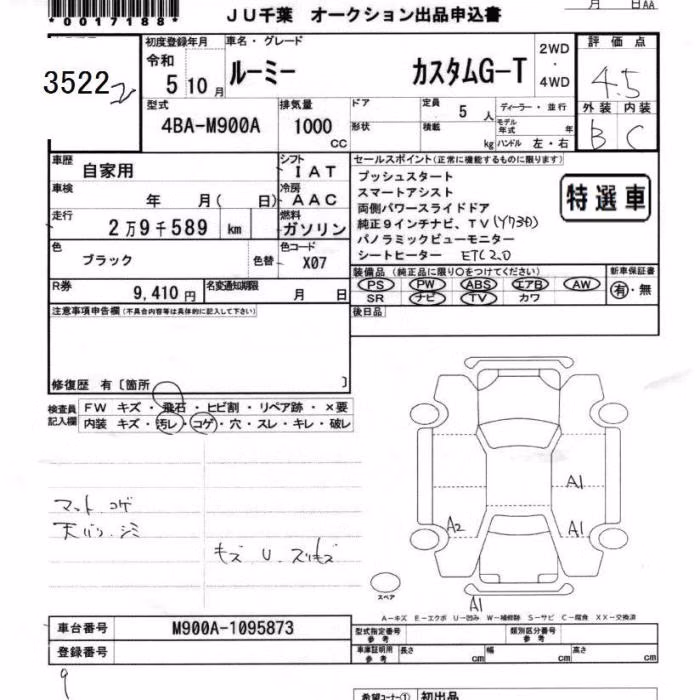 *0017188*
月 日AA
JU千葉 オークション出品申込書
3522
初度登録年月
令和
5 10月
車名・グレード
ルーミー カスタムG-T
2WD
・
4WD
評価点
4.5
外装 内装
B C
型式
4BA-M900A
排気量
1000
CC
ドア
形状
定員
5 人
積載
kg
ディーラー・並行
モデル年式 年
ハンドル 左・右
車歴
自家用
シフト
IAT
車検
年 月( 日)
冷房
AAC
走行
2万9千589 km
燃料
ガソリン
色
ブラック
色替
色コード
X07
R券
9,410円
名変通知期限
月 日
セールスポイント(正常に機能するものに限ります)
プッシュスタート
スマートアシスト
両側パワースライドドア
純正9インチナビ、TV
パノラミックビューモニター
シートヒーター ETC2.0
特選車
装備品 (純正品に限り○をつけてください)
PS PW ABS エアB AW
SR ナビ TV カワ
新車保証書
有・無
後日品
注意事項申告欄(不具合内容等は具体的に記入して下さい)
修復歴 有〔箇所 〕
検査員
記入欄
FW キズ・飛石・ヒビ割・リペア跡・×要
内装 キズ・汚レ・コゲ・穴・スレ・キレ・破レ
マット コゲ
天バリ シミ
キズ U スリキズ
A1
A2
A1
A1
スペア
A-キズ E-エクボ U-凹み W-補修跡 S-サビ C-腐食 XX-交換済
車台番号
M900A-1095873
登録番号
型式指定番号
参考
類別区分番号
参考
車庫証明用
参考
長さ cm
幅 cm
高さ cm
希望コーナー① 初出品